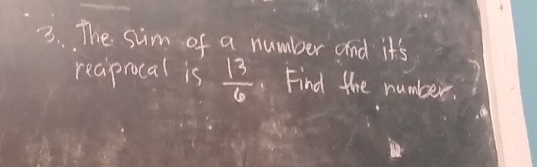 3. The sum of a number and it's
reciprocal is 13/6. Find the number.